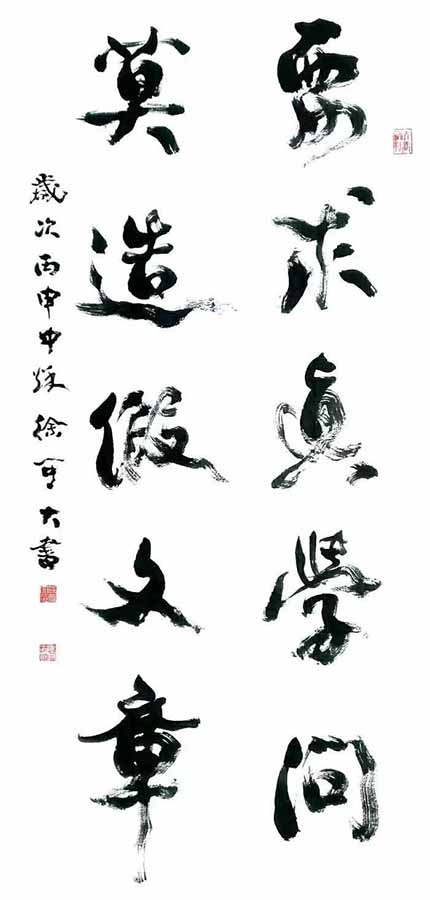 要求真學問
莫造假文章
歲次丙申中秋徐大書